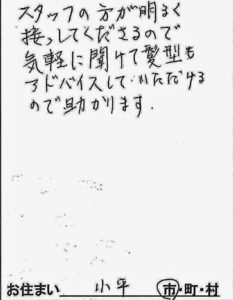 スタッフの方が明るく
接っしてくださるので
気軽に聞けて髪型も
アドバイスしていただける
ので助かります.
お住まい 小平 市・町・村